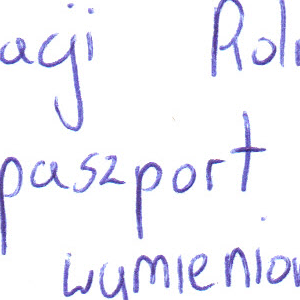 acji Rol
paszport
wymienion